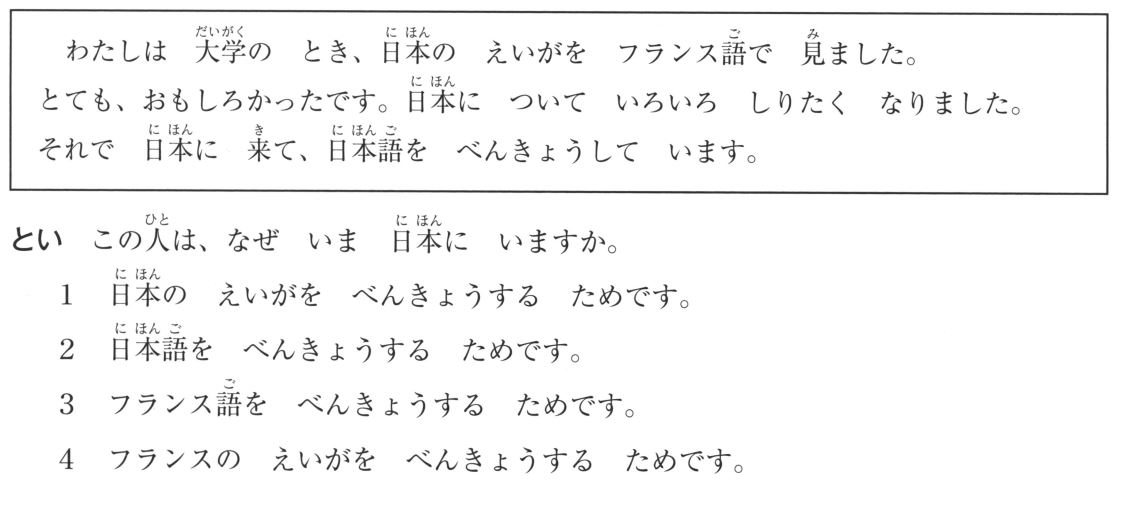 わたしは　大学の　とき、日本の　えいがを　フランス語で　見ました。
とても、おもしろかったです。日本に　ついて　いろいろ　しりたく　なりました。
それで　日本に　来て、日本語を　べんきょうして　います。
とい　この人は、なぜ　いま　日本に　いますか。
1　日本の　えいがを　べんきょうする　ためです。
2　日本語を　べんきょうする　ためです。
3　フランス語を　べんきょうする　ためです。
4　フランスの　えいがを　べんきょうする　ためです。